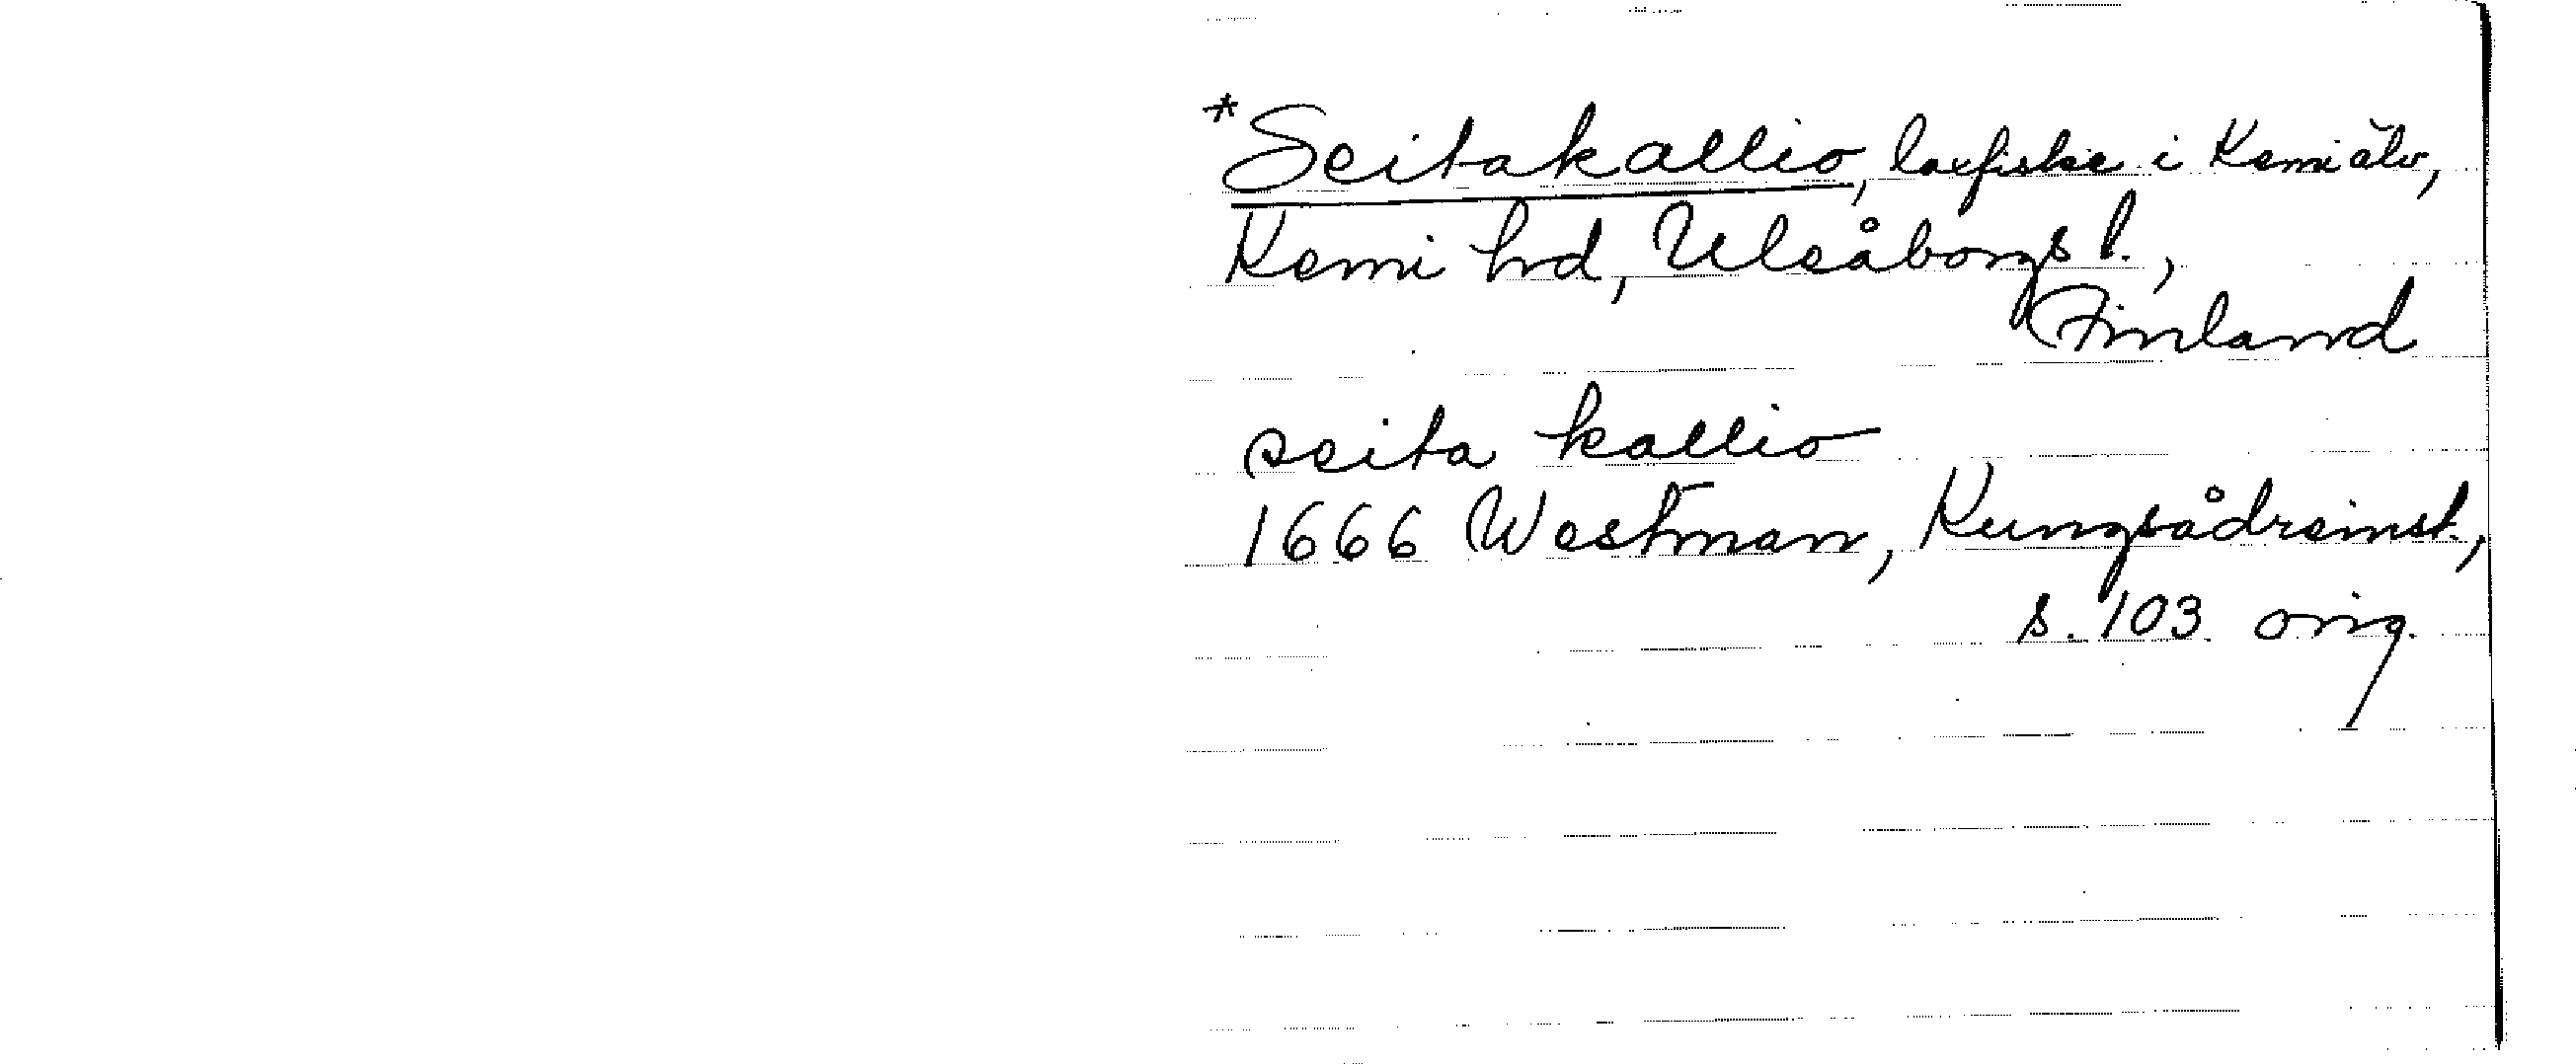 *Seitakallio, laxfiske i Kemi älv,
Kemi hrd, Uleåborgs l.,
Finland
seita kallio
1666 Westman, Kungsådreinst.,
s. 103 orig.